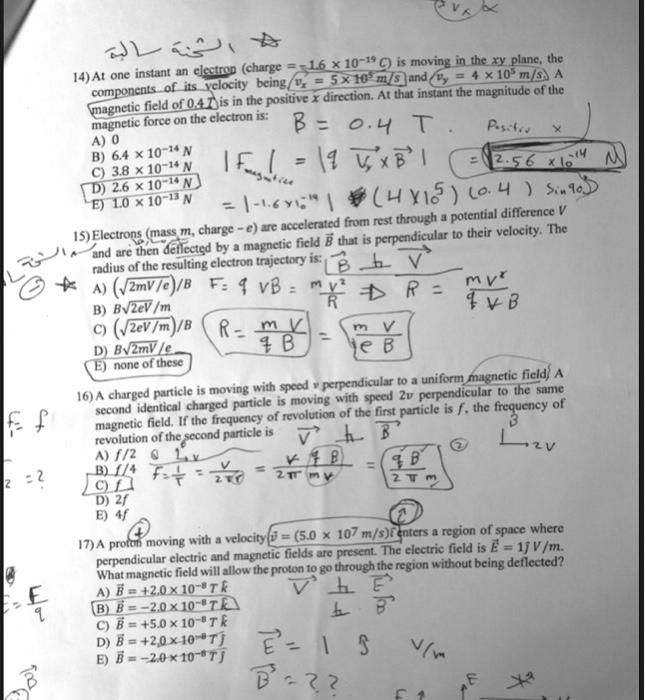 V x
السنة سالبة
14) At one instant an electron (charge = -1.6 × 10⁻¹⁹ C) is moving in the xy plane, the
components of its velocity being vₓ = 5×10⁵ m/s and vᵧ = 4 × 10⁵ m/s. A
magnetic field of 0.4 T is in the positive x direction. At that instant the magnitude of the
magnetic force on the electron is:
B = 0.4 T. Positive x
A) 0
B) 6.4 × 10⁻¹⁴ N
C) 3.8 × 10⁻¹⁴ N
D) 2.6 × 10⁻¹⁴ N
E) 1.0 × 10⁻¹³ N
|F magnetice| = |q V × B| = 2.56 × 10⁻¹⁴ N
= |-1.6 × 10⁻¹⁹| (4×10⁵) (0.4) Sin 90
15) Electrons (mass m, charge −e) are accelerated from rest through a potential difference V
and are then deflected by a magnetic field B⃗ that is perpendicular to their velocity. The
radius of the resulting electron trajectory is: B⃗ ⊥ V⃗
A) (√2mV/e)/B F = q V B = m V²/R ⇒ R = mV²/qVB
B) B√2eV/m
C) (√2eV/m)/B R = m V/q B = m V/e B
D) B√2mV/e
E) none of these
16) A charged particle is moving with speed v perpendicular to a uniform magnetic field. A
second identical charged particle is moving with speed 2v perpendicular to the same
magnetic field. If the frequency of revolution of the first particle is f, the frequency of
revolution of the second particle is V⃗ ⊥ B⃗
B
2V
f₁ = f
2 = ?
A) f/2
B) f/4 F = 1/T = V/2πr = V q B/2π m V = q B/2π m
C) f
D) 2f
E) 4f
17) A proton moving with a velocity v⃗ = (5.0 × 10⁷ m/s)î enters a region of space where
perpendicular electric and magnetic fields are present. The electric field is E⃗ = 1ĵ V/m.
What magnetic field will allow the proton to go through the region without being deflected?
A) B⃗ = +2.0 × 10⁻⁸ T k̂ V⃗ ⊥ E⃗
B) B⃗ = −2.0 × 10⁻⁸ T k̂ ⊥ B⃗
C) B⃗ = +5.0 × 10⁻⁸ T k̂
D) B⃗ = +2.0 × 10⁻⁸ T ĵ
E) B⃗ = −2.0 × 10⁻⁸ T ĵ
= F/q
E⃗ = 1 ĵ V/m
B⃗ = ??
B⃗
E